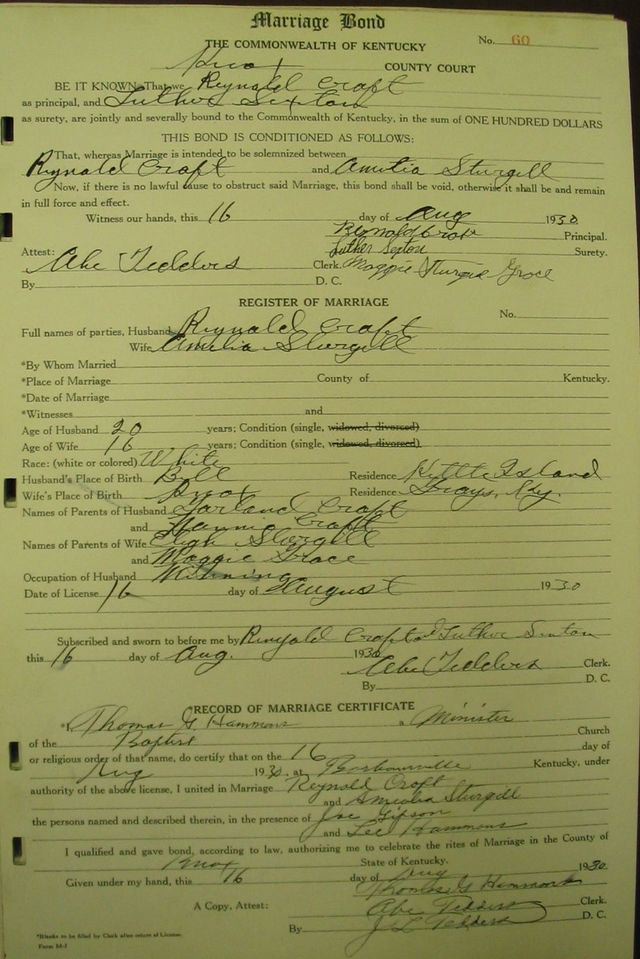 Marriage Bond
No. 60
THE COMMONWEALTH OF KENTUCKY
Knox COUNTY COURT
BE IT KNOWN, That we Reynald Craft
as principal, and Luther Sexton
as surety, are jointly and severally bound to the Commonwealth of Kentucky, in the sum of ONE HUNDRED DOLLARS
THIS BOND IS CONDITIONED AS FOLLOWS:
That, whereas Marriage is intended to be solemnized between
Reynald Craft and Amelia Sturgill
Now, if there is no lawful cause to obstruct said Marriage, this bond shall be void, otherwise it shall be and remain
in full force and effect.
Witness our hands, this 16 day of Aug 1930
Reynald Craft Principal.
Luther Sexton Surety.
Attest:
Abe Tedders Clerk. Maggie Sturgill Grace
By D. C.
REGISTER OF MARRIAGE
No.
Full names of parties, Husband Reynald Craft
Wife Amelia Sturgill
*By Whom Married
*Place of Marriage County of Kentucky.
*Date of Marriage
*Witnesses and
Age of Husband 20 years; Condition (single, widowed, divorced)
Age of Wife 16 years; Condition (single, widowed, divorced)
Race: (white or colored) White
Husband's Place of Birth Bell Residence Kettle Island
Wife's Place of Birth Knox Residence Grays, Ky.
Names of Parents of Husband Garland Craft
and Nannie Craft
Names of Parents of Wife Eligh Sturgill
and Maggie Grace
Occupation of Husband Minning
Date of License 16 day of August 1930
Subscribed and sworn to before me by Reynald Craft and Luther Sexton
this 16 day of Aug. 1930
Abe Tedders Clerk.
By D. C.
RECORD OF MARRIAGE CERTIFICATE
*I, Thomas G Hammons a Minister
of the Baptist Church
or religious order of that name, do certify that on the 16 day of
Aug 1930, at Barbourville Kentucky, under
authority of the above license, I united in Marriage Reynold Croft
and Amelia Sturgill
the persons named and described therein, in the presence of Joe Gipson
and Lee Hammons
I qualified and gave bond, according to law, authorizing me to celebrate the rites of Marriage in the County of
Knox State of Kentucky.
Given under my hand, this 16 day of Aug 1930
Thomas G Hammock
A Copy, Attest: Abe Tedders Clerk.
By J L Tedders D. C.
*Blanks to be filled by Clerk after return of License.
Form M-1